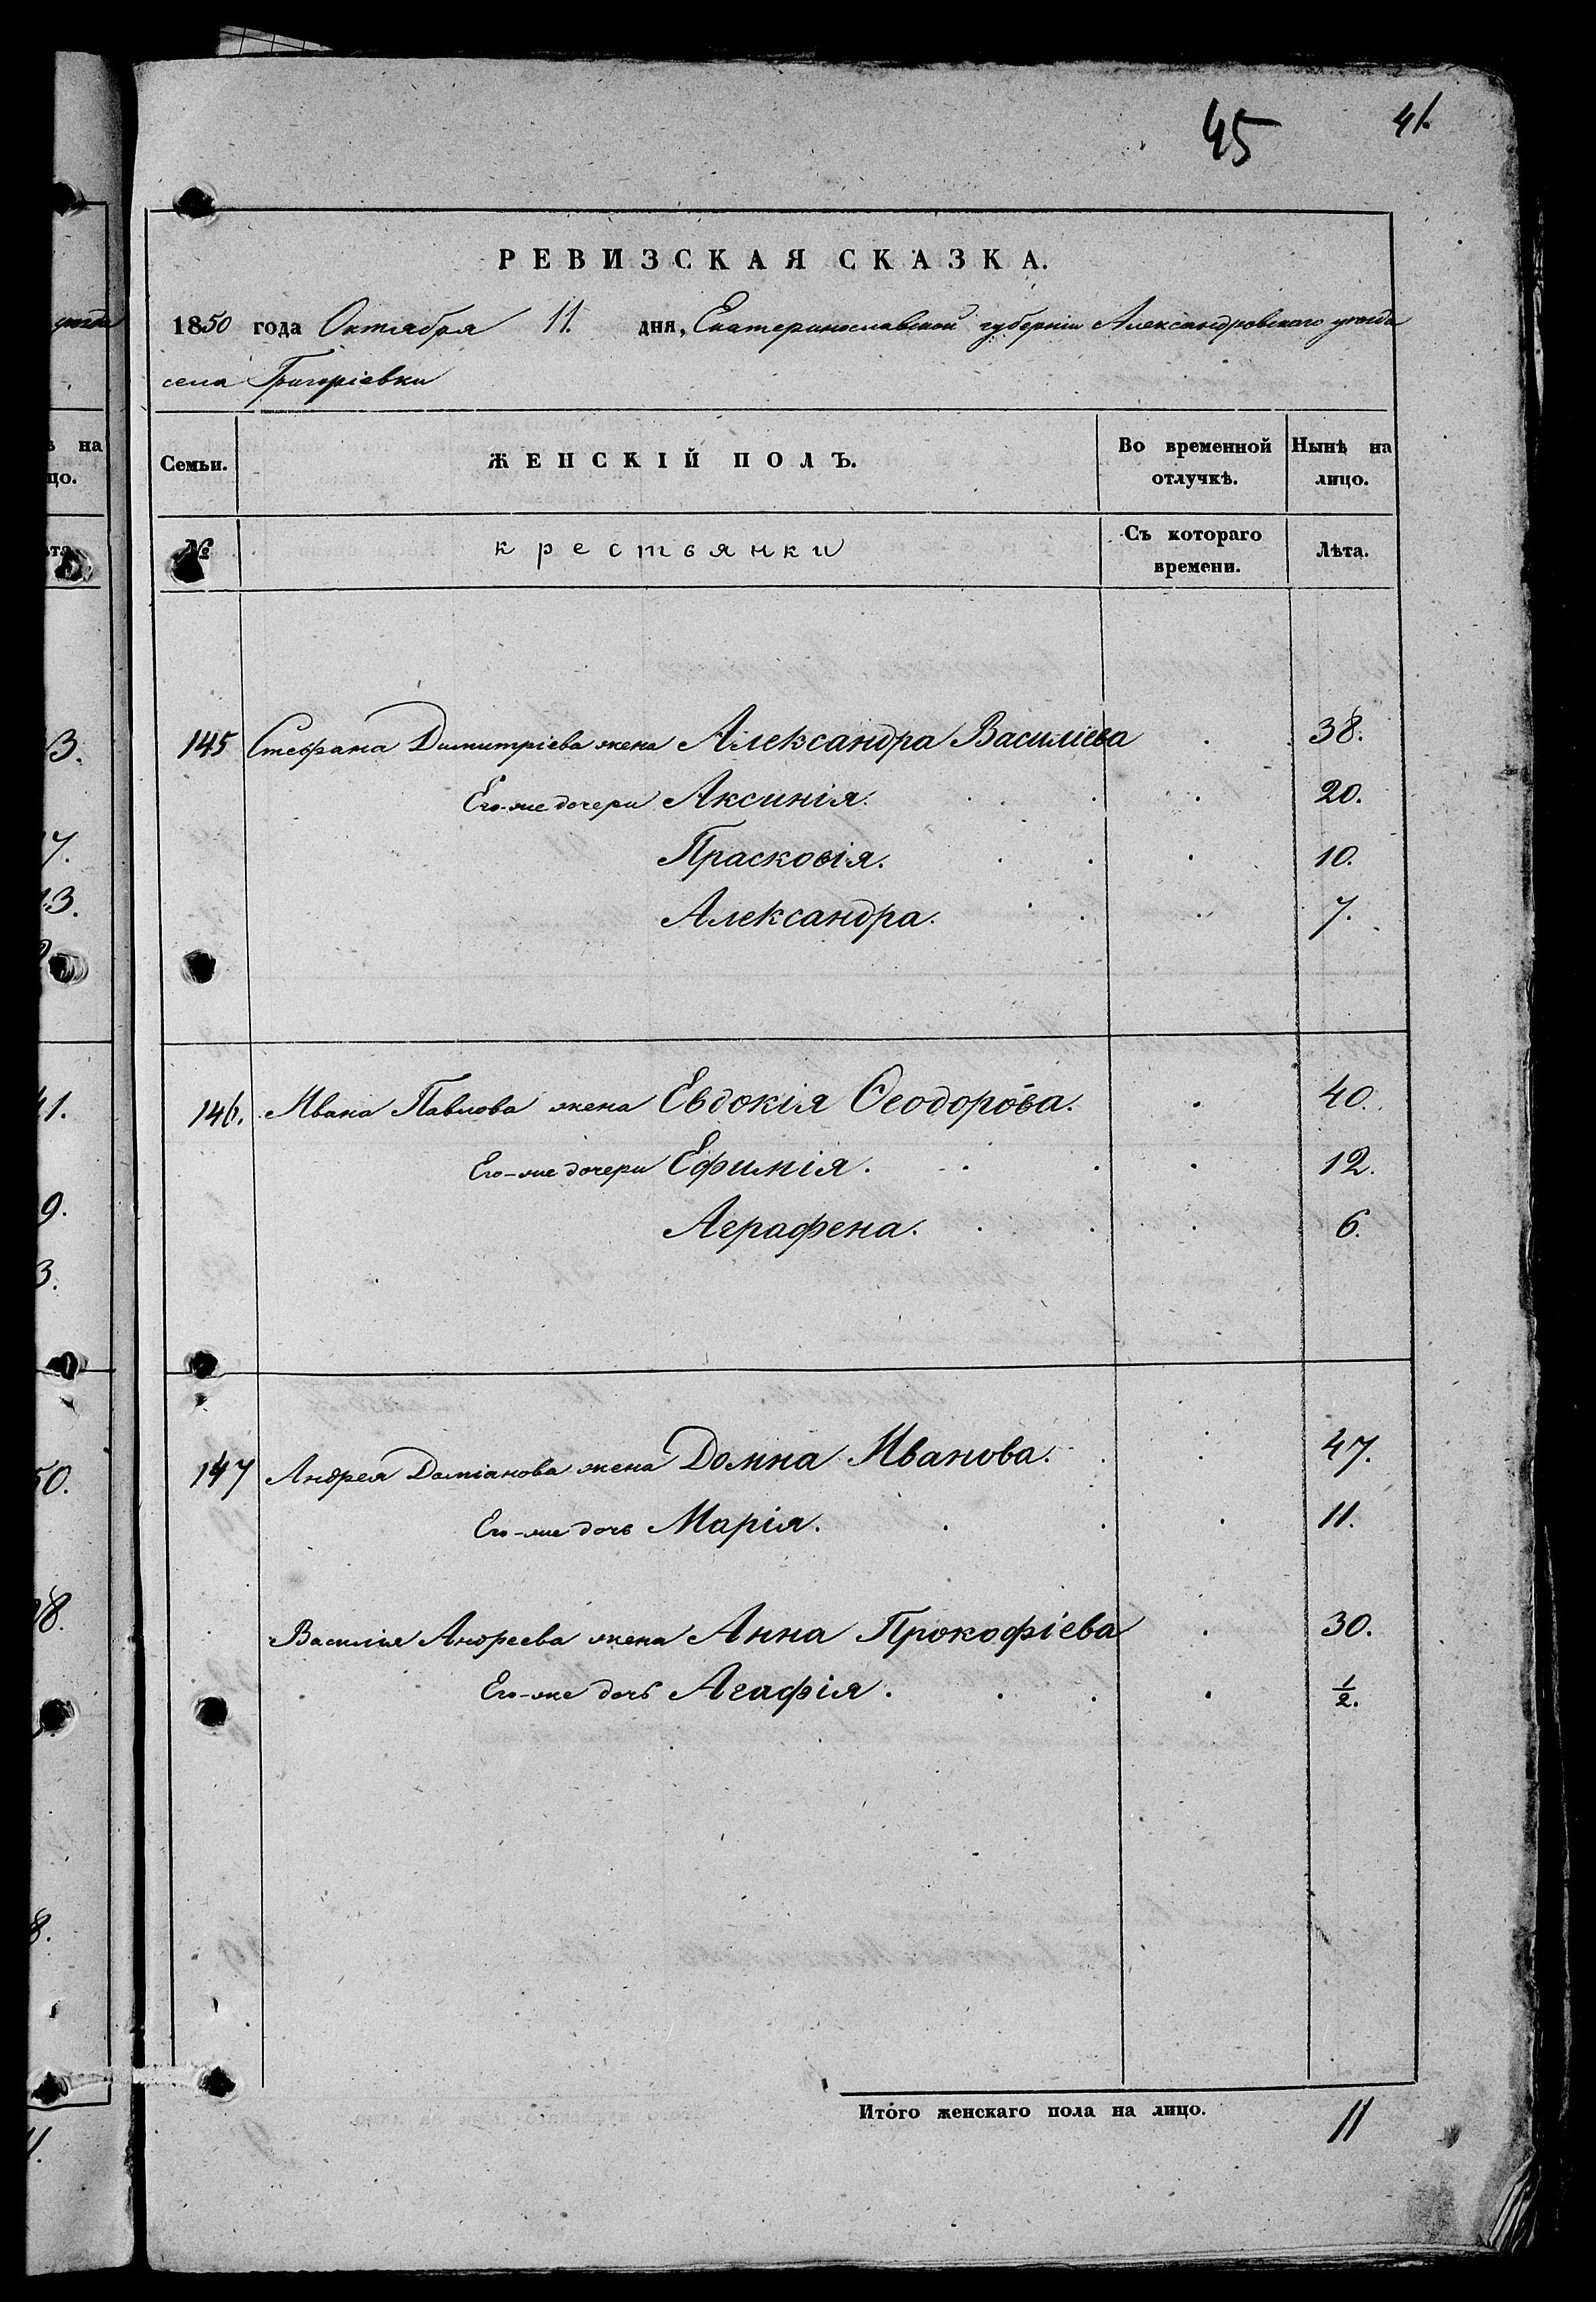 45 41.
РЕВИЗСКАЯ СКАЗКА.
1850 года Октября 11. дня, Екатеринославской губерніи Александровского уѣзда
села Григоріевки
Семьи. ЖЕНСКІЙ ПОЛЪ. Во временной отлучкѣ. Нынѣ на лицо.
№ крестьянки Съ котораго времени. Лѣта.
145 Стефана Димитріева жена Александра Василіева 38.
Его-же дочери Аксинія. 20.
Прасковія. 10.
Александра. 7.
146. Ивана Павлова жена Евдокія Ѳеодорова. 40.
Его-же дочери Ефимія. 12.
Аграфена. 6.
147 Андрея Даміанова жена Домна Иванова. 47.
Его-же дочь Марія. 11.
Василія Андреева жена Анна Прокофіева 30.
Его-же дочь Агафія. 1/2.
Итого женскаго пола на лицо. 11